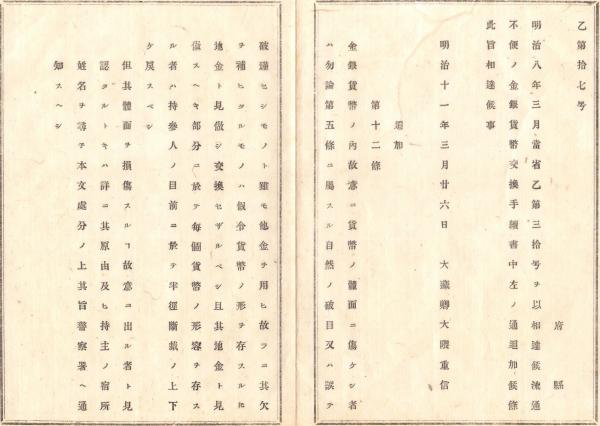 乙第拾七号
府縣
明治八年三月當省乙第三拾号ヲ以相達候流通
不便ノ金銀貨幣交換手續書中左ノ通追加候條
此旨相達候事
明治十一年三月廿六日 大藏卿大隈重信
追加
第十二條
金銀貨幣ノ內故意ニ貨幣ノ體面ニ傷ケシ者
ハ勿論第五條ニ屬スル自然ノ破目又ハ誤テ
破潰セシモノト雖モ他金ヲ用ヒ故ラニ其欠
ヲ補ヒタルモノハ假令貨幣ノ形ヲ存スルモ
地金ト見做シ交換セザルベシ且其地金ト見
做スヘキ部分ニ於テ每個貨幣ノ形容ヲ存ス
ル者ハ持參人ノ目前ニ於テ半徑斷裁ノ上下
ケ戾スベシ
但其體面ヲ損傷スルヿ故意ニ出ル者ト見
認タルトキハ詳ニ其原由及ヒ持主ノ宿所
姓名ヲ尋子本文處分ノ上其旨警察署ヘ通
知スヘシ